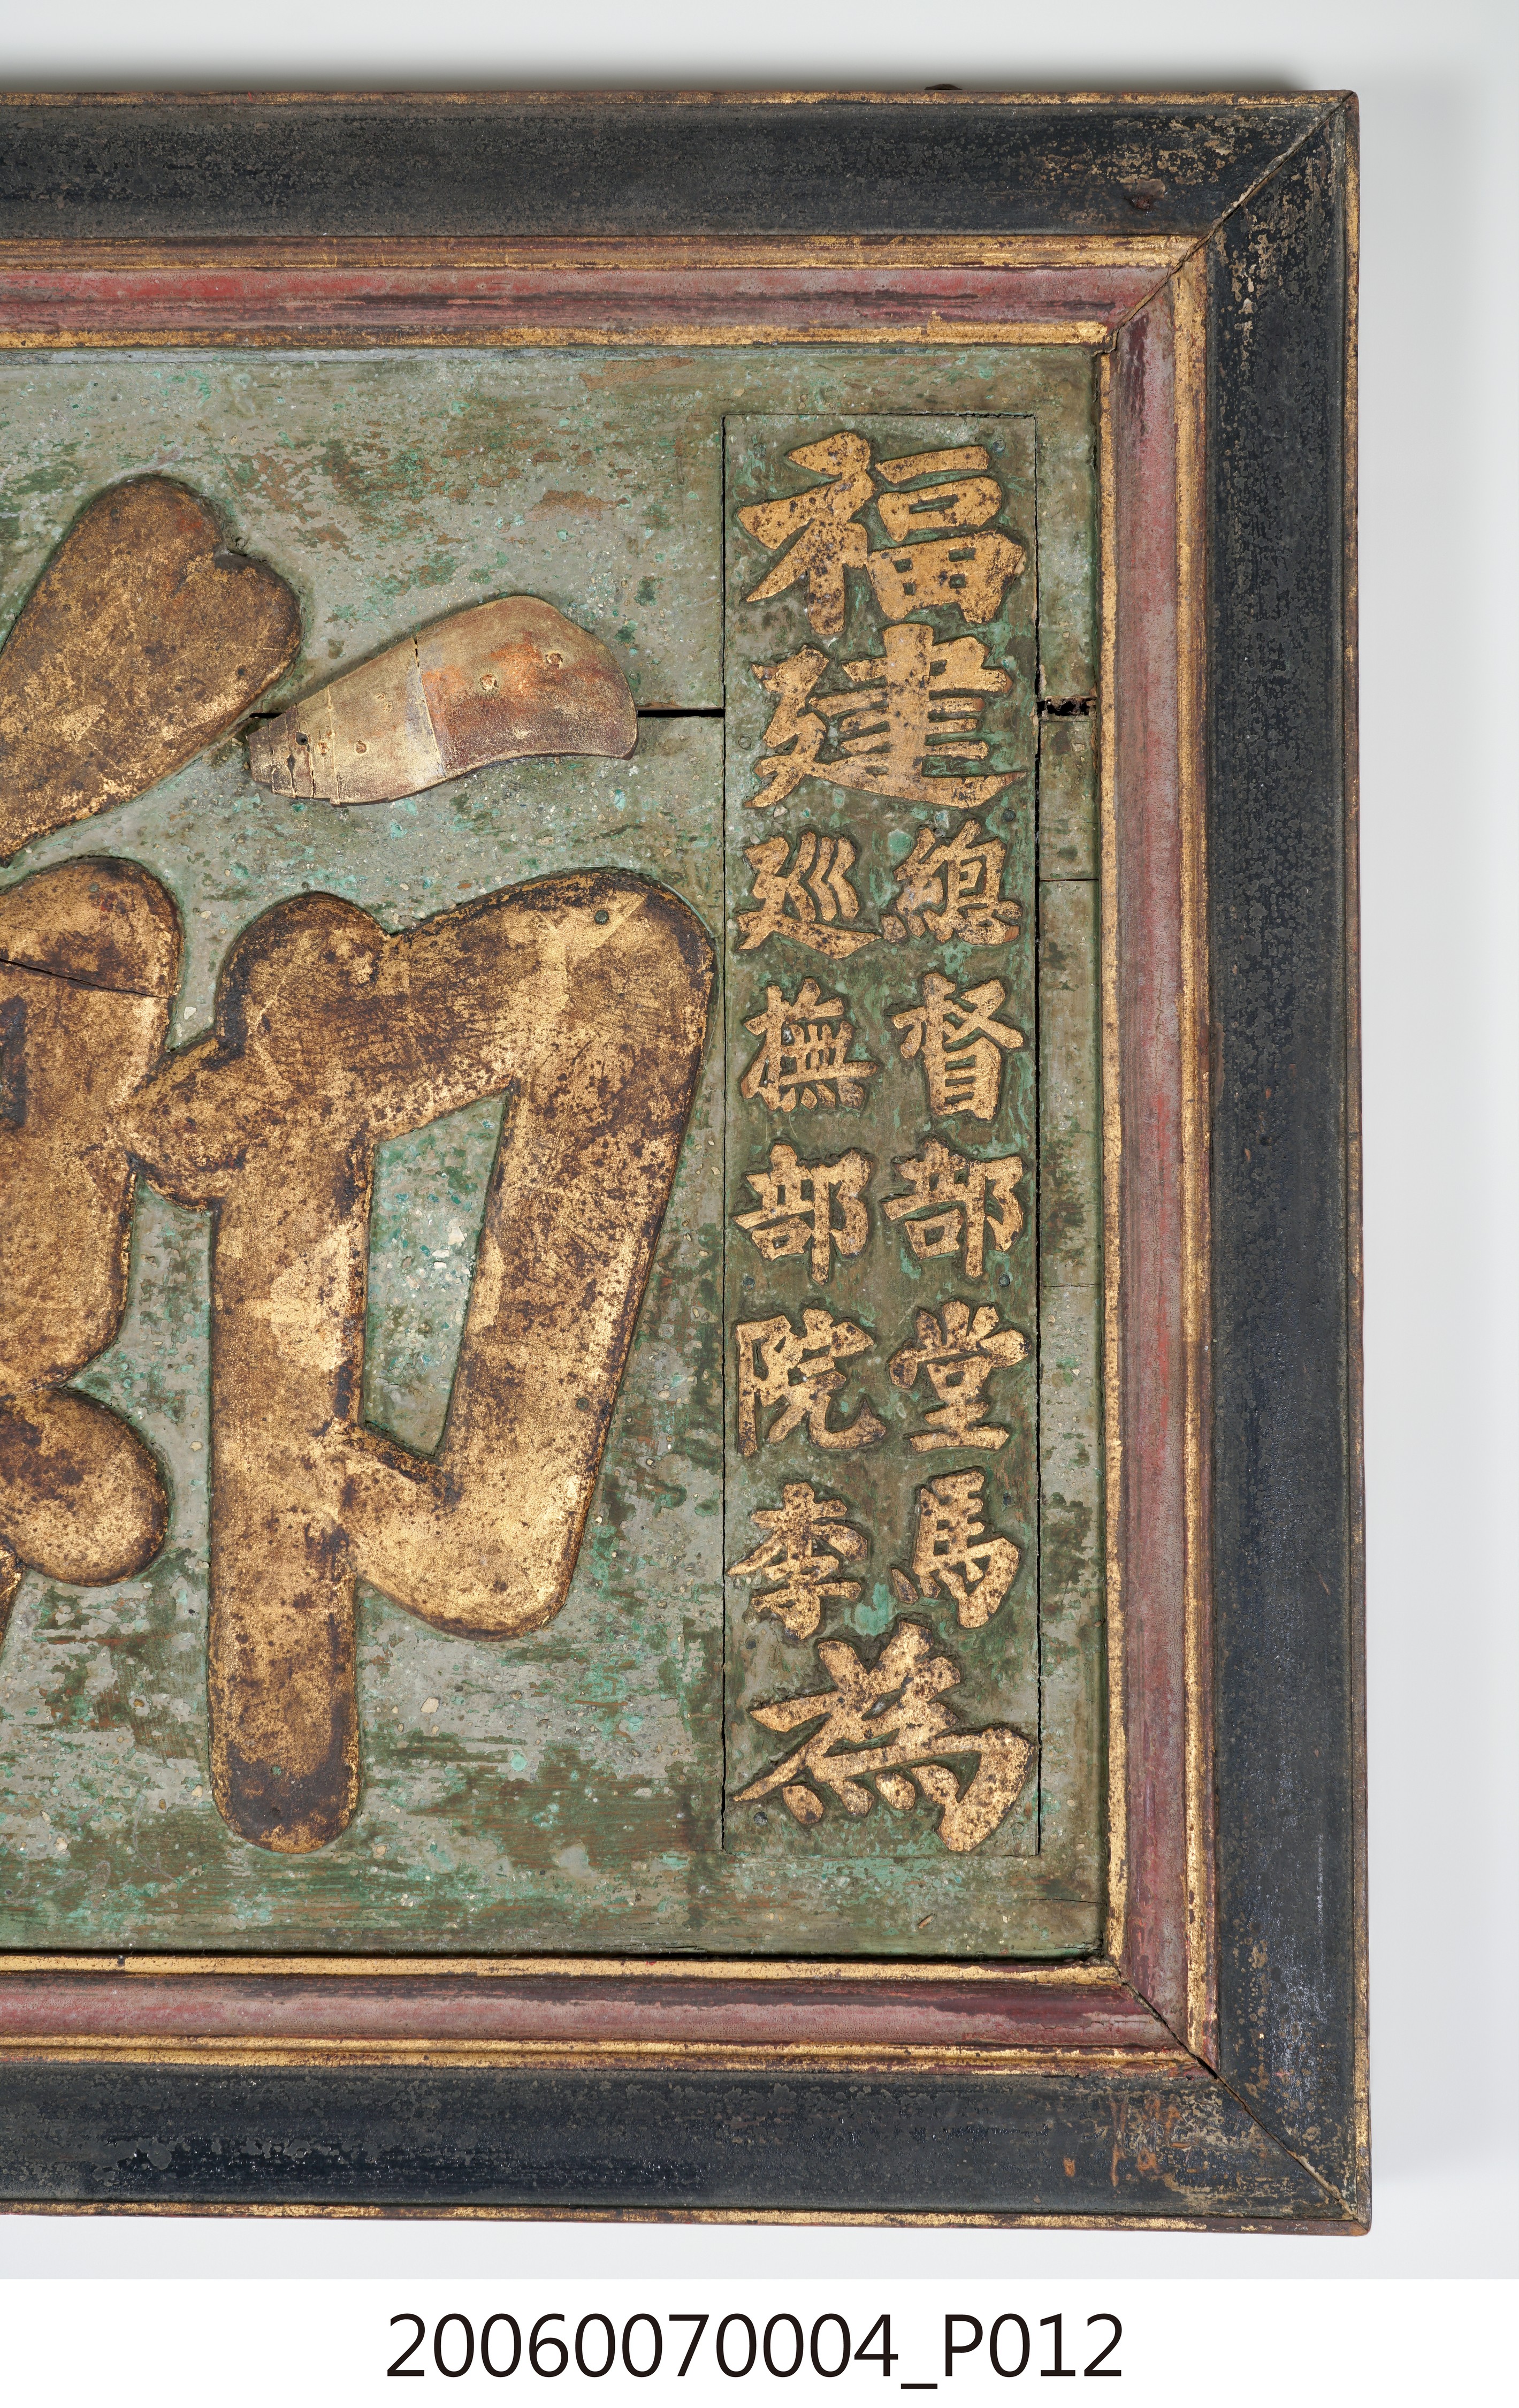 福建
總督部堂馬
巡撫部院李
為
20060070004_P012